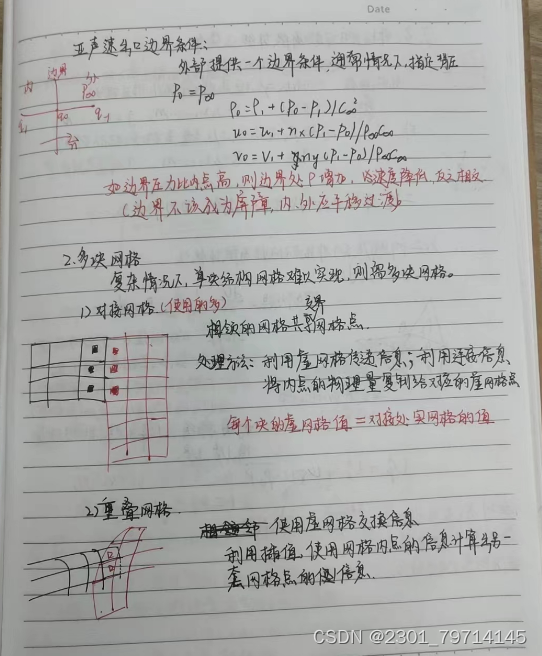 Date
亚声速出口边界条件:
外部提供一个边界条件,通常情况下,指定背压
边界
内 外
P∞
P₀ = P∞
q₁ q₀ q₋₁
ρ₀ = ρ₁ + (P₀ - P₁)/C∞²
u₀ = u₁ + nx (P₁ - P₀)/ρ∞C∞
v₀ = v₁ + ny (P₁ - P₀)/ρ∞C∞
如边界压力比内点高,则边界处ρ增加,法速度降低,反之相反
(边界不该成为屏障,内、外应平稳过渡)
2.多块网格
复杂情况下,单块结构网格难以实现,则需多块网格。
1) 对接网格(使用的多)
交界
相领的网格共享网格点.
处理方法:利用虚网格传递信息;利用连接信息
将内点的物理量复制给对应的虚网格点
每个块的虚网格值=对接处实网格的值
2) 重叠网格.
使用虚网格交换信息
利用插值,使用网格内点的信息计算出另一
套网格点的信息.
CSDN @2301_79714145